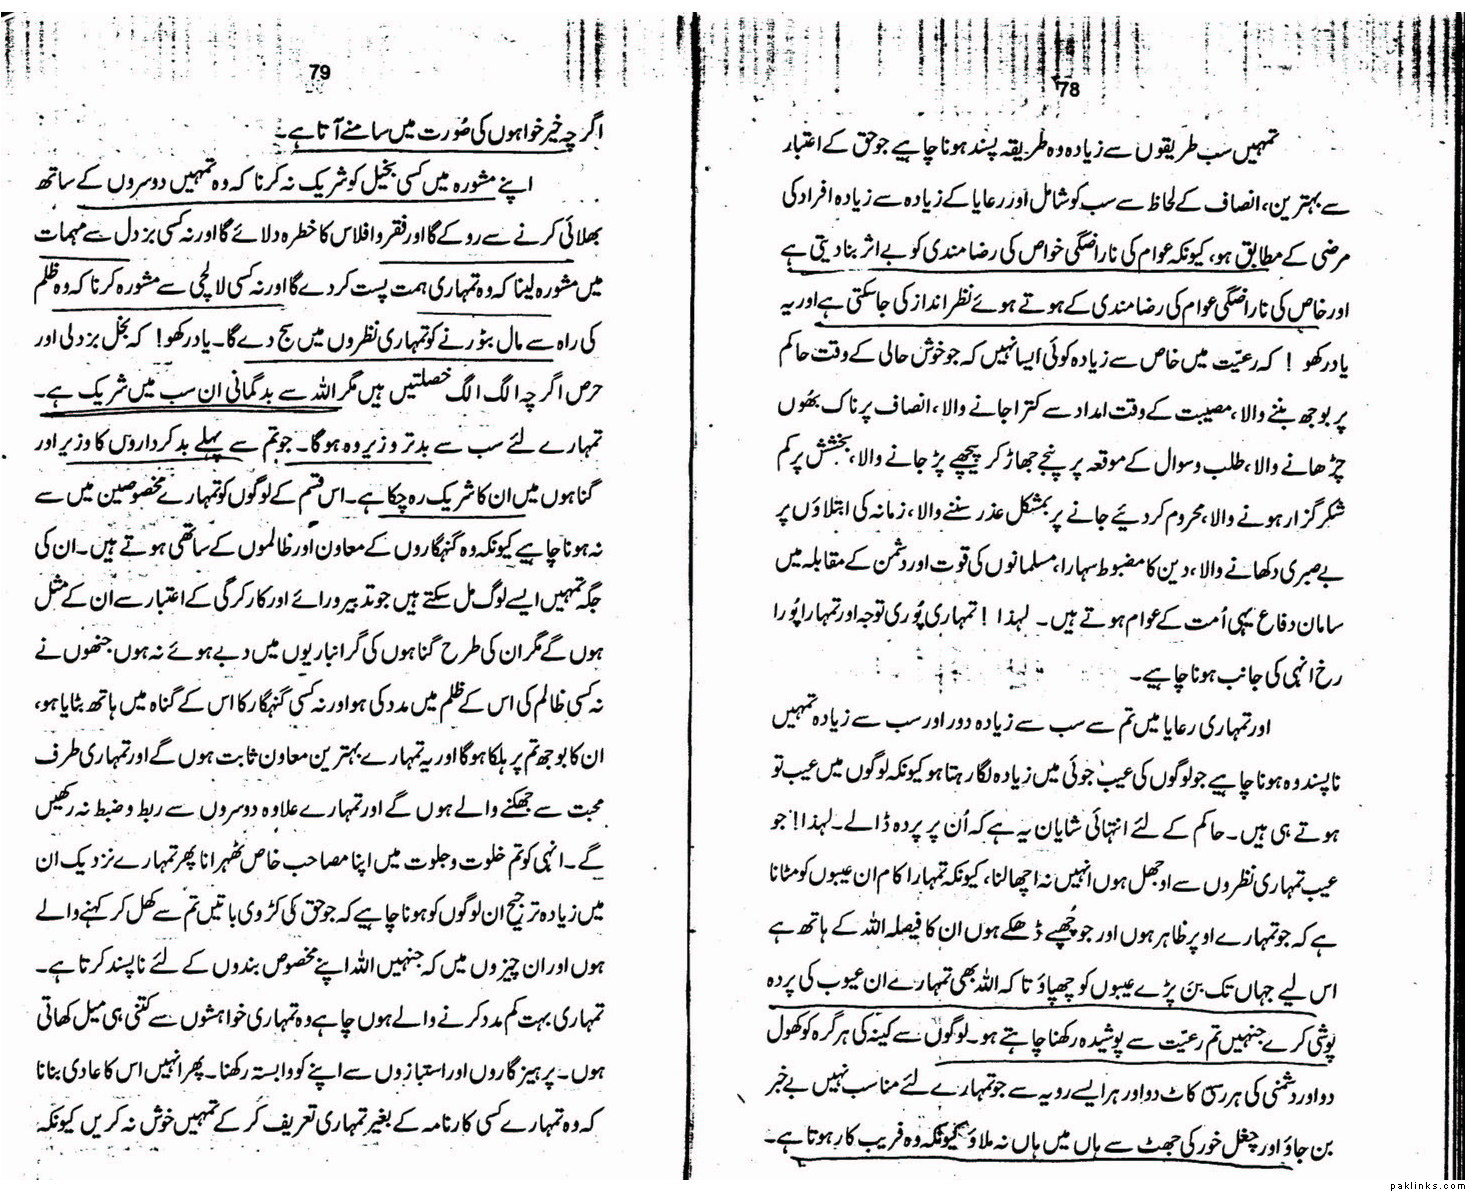 78
تمہیں سب طریقوں سے زیادہ وہ طریقہ پسند ہونا چاہیے جو حق کے اعتبار
سے بہترین، انصاف کے لحاظ سے سب کو شامل اور رعایا کے زیادہ سے زیادہ افراد کی
مرضی کے مطابق ہو، کیونکہ عوام کی ناراضگی خواص کی رضامندی کو بے اثر بنا دیتی ہے
اور خاص کی ناراضگی عوام کی رضامندی کے ہوتے ہوئے نظر انداز کی جا سکتی ہے اور یہ
یاد رکھو ! کہ رعیّت میں خاص سے زیادہ کوئی ایسا نہیں کہ جو خوش حالی کے وقت حاکم
پر بوجھ بننے والا، مصیبت کے وقت امداد سے کترا جانے والا، انصاف پر ناک بھُوں
چڑھانے والا، طلب و سوال کے موقعہ پر پنجے جھاڑ کر پیچھے پڑ جانے والا، بخشش پر کم
شکر گزار ہونے والا، محروم کر دیئے جانے پر بمشکل عذر سننے والا، زمانہ کی ابتلاؤں پر
بے صبری دکھانے والا، دین کا مضبوط سہارا، مسلمانوں کی قوت اور دشمن کے مقابلہ میں
سامان دفاع یہی اُمت کے عوام ہوتے ہیں۔ لہذا ! تمہاری پُوری توجہ اور تمہارا پُورا
رخ انہی کی جانب ہونا چاہیے۔
اور تمہاری رعایا میں تم سے سب سے زیادہ دور اور سب سے زیادہ تمہیں
ناپسند وہ ہونا چاہیے جو لوگوں کی عیب جوئی میں زیادہ لگا رہتا ہو کیونکہ لوگوں میں عیب تو
ہوتے ہی ہیں۔ حاکم کے لئے انتہائی شایان یہ ہے کہ اُن پر پردہ ڈالے۔ لہذا! جو
عیب تمہاری نظروں سے اوجھل ہوں انہیں نہ اچھالنا، کیونکہ تمہارا کام ان عیبوں کو مٹانا
ہے کہ جو تمہارے اوپر ظاہر ہوں اور جو چُھپے ڈھکے ہوں ان کا فیصلہ اللہ کے ہاتھ ہے
اس لیے جہاں تک بن پڑے عیبوں کو چھپاؤ تا کہ اللہ بھی تمہارے ان عیوب کی پردہ
پوشی کرے جنہیں تم رعیّت سے پوشیدہ رکھنا چاہتے ہو۔ لوگوں سے کینہ کی ہر گرہ کو کھول
دو اور دشمنی کی ہر رسی کاٹ دو اور ہر ایسے رویہ سے جو تمہارے لئے مناسب نہیں بے خبر
بن جاؤ اور چغل خور کی جھٹ سے ہاں میں ہاں نہ ملاؤ کیونکہ وہ فریب کار ہوتا ہے۔
79
اگرچہ خیر خواہوں کی صُورت میں سامنے آتا ہے۔
اپنے مشورہ میں کسی بخیل کو شریک نہ کرنا کہ وہ تمہیں دوسروں کے ساتھ
بھلائی کرنے سے روکے گا اور فقر و افلاس کا خطرہ دلائے گا اور نہ کسی بزدل سے مہمات
میں مشورہ لینا کہ وہ تمہاری ہمت پست کر دے گا اور نہ کسی لالچی سے مشورہ کرنا کہ وہ ظلم
کی راہ سے مال بٹورنے کو تمہاری نظروں میں سج دے گا۔ یاد رکھو! کہ بخل بزدلی اور
حرص اگرچہ الگ الگ خصلتیں ہیں مگر اللہ سے بدگمانی ان سب میں شریک ہے۔
تمہارے لئے سب سے بدتر وزیر وہ ہوگا۔ جو تم سے پہلے بدکرداروں کا وزیر اور
گناہوں میں ان کا شریک رہ چکا ہے۔ اس قسم کے لوگوں کو تمہارے مخصوصین میں سے
نہ ہونا چاہیے کیونکہ وہ گنہگاروں کے معاون اور ظالموں کے ساتھی ہوتے ہیں۔ ان کی
جگہ تمہیں ایسے لوگ مل سکتے ہیں جو تدبیر و رائے اور کارکردگی کے اعتبار سے ان کے مثل
ہوں گے مگر ان کی طرح گناہوں کی گرانباریوں میں دبے ہوئے نہ ہوں جنھوں نے
نہ کسی ظالم کی اس کے ظلم میں مدد کی ہو اور نہ کسی گنہگار کا اس کے گناہ میں ہاتھ بٹایا ہو،
ان کا بوجھ تم پر ہلکا ہوگا اور یہ تمہارے بہترین معاون ثابت ہوں گے اور تمہاری طرف
محبت سے جھکنے والے ہوں گے اور تمہارے علاوہ دوسروں سے ربط و ضبط نہ رکھیں
گے۔ انہی کو تم خلوت و جلوت میں اپنا مصاحب خاص ٹھہرانا پھر تمہارے نزدیک ان
میں زیادہ ترجیح ان لوگوں کو ہونا چاہیے کہ جو حق کی کڑوی باتیں تم سے کھل کر کہنے والے
ہوں اور ان چیزوں میں کہ جنہیں اللہ اپنے مخصوص بندوں کے لئے ناپسند کرتا ہے۔
تمہاری بہت کم مدد کرنے والے ہوں چاہے وہ تمہاری خواہشوں سے کتنی ہی میل کھاتی
ہوں۔ پرہیزگاروں اور استبازوں سے اپنے کو وابستہ رکھنا۔ پھر انہیں اس کا عادی بنانا
کہ وہ تمہارے کسی کارنامہ کے بغیر تمہاری تعریف کر کے تمہیں خوش نہ کریں کیونکہ
paklinks.com